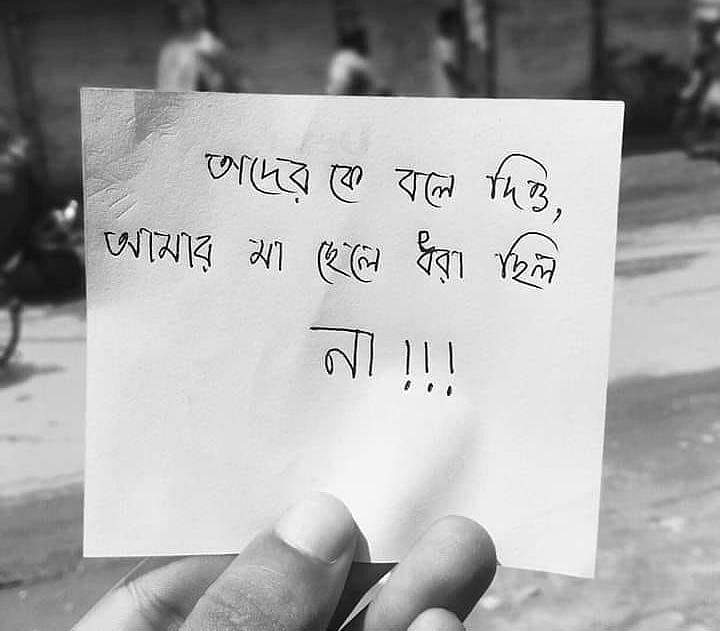 তাদের কে বলে দিও,
আমার মা ছেলে ধরা ছিল
না !!!